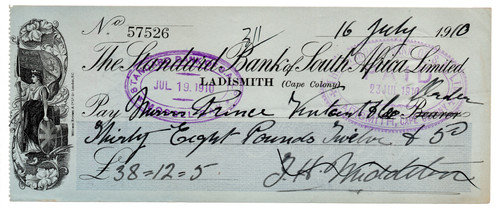 No 57526 311 16 July 1910
The Standard Bank of South Africa, Limited.
LADISMITH (Cape Colony)
STANDARD BANK
JUL 19. 1910
23 JUL 1910
Order
Pay Messrs Prince Vintcent & Co Bearer
Thirty Eight Pounds Twelve & 5D
£38=12=5. J.H. Middleton